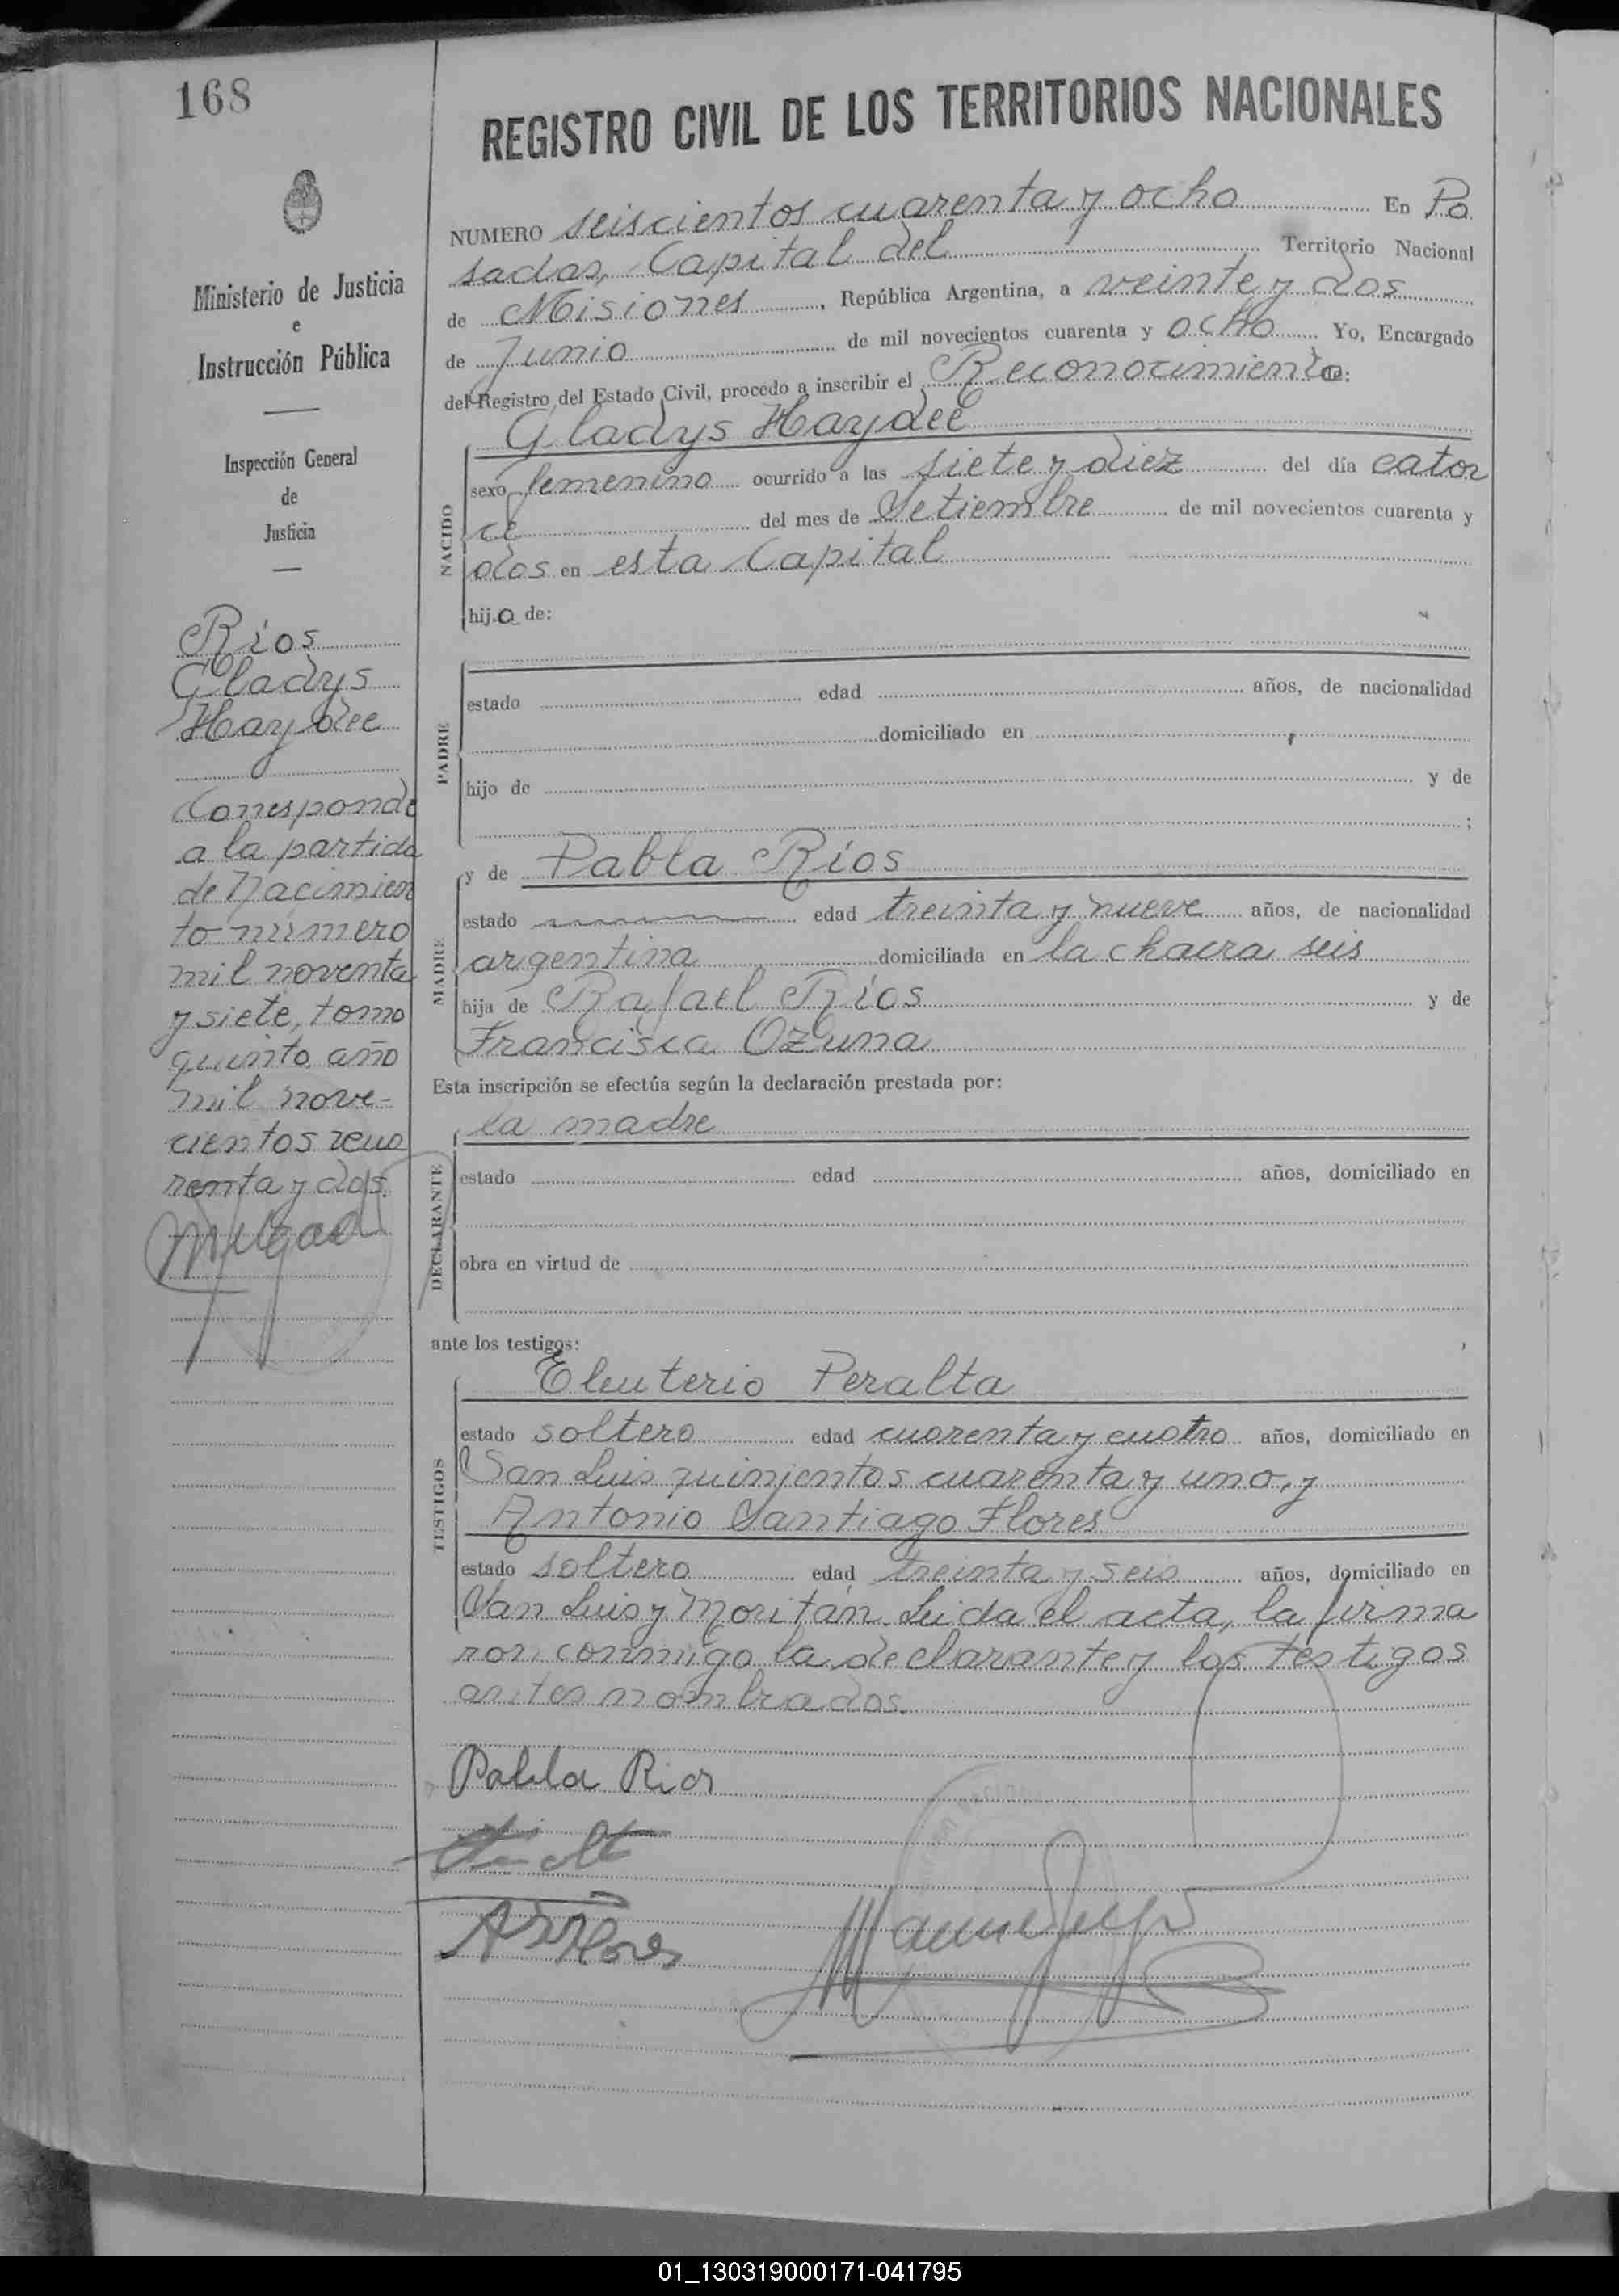 168
REGISTRO CIVIL DE LOS TERRITORIOS NACIONALES
Ministerio de Justicia
e
Instrucción Pública
Inspección General
de
Justicia
Ríos
Gladys
Haydee
Corresponde
a la partida
de Nacimien
to número
mil noventa
y siete, tomo
quinto año
mil nove-
cientos cua
renta y dos.
NUMERO seiscientos cuarenta y ocho En Po
sadas, Capital del Territorio Nacional
de Misiones, República Argentina, a veinte y dos
de Junio de mil novecientos cuarenta y ocho Yo, Encargado
del Registro del Estado Civil, procedo a inscribir el Reconocimiento de:
Gladys Haydeé
NACIDO
sexo femenino ocurrido a las siete y diez del día cator
ce del mes de Setiembre de mil novecientos cuarenta y
dos en esta Capital
hija de:
PADRE
estado edad años, de nacionalidad
domiciliado en
hijo de y de
;
MADRE
y de Pabla Ríos
estado edad treinta y nueve años, de nacionalidad
argentina domiciliada en la chacra seis
hija de Rafael Ríos y de
Francisca Ozuna
Esta inscripción se efectúa según la declaración prestada por:
la madre
DECLARANTE
estado edad años, domiciliado en
obra en virtud de
ante los testigos:
TESTIGOS
Eleuterio Peralta
estado soltero edad cuarenta y cuatro años, domiciliado en
San Luis quinientos cuarenta y uno, y
Antonio Santiago Flores
estado soltero edad treinta y seis años, domiciliado en
San Luis y Moritán. Leida el acta, la firma
ron conmigo la declarante y los testigos
antes nombrados.
Pabla Rios
ASFlores
01_130319000171-041795